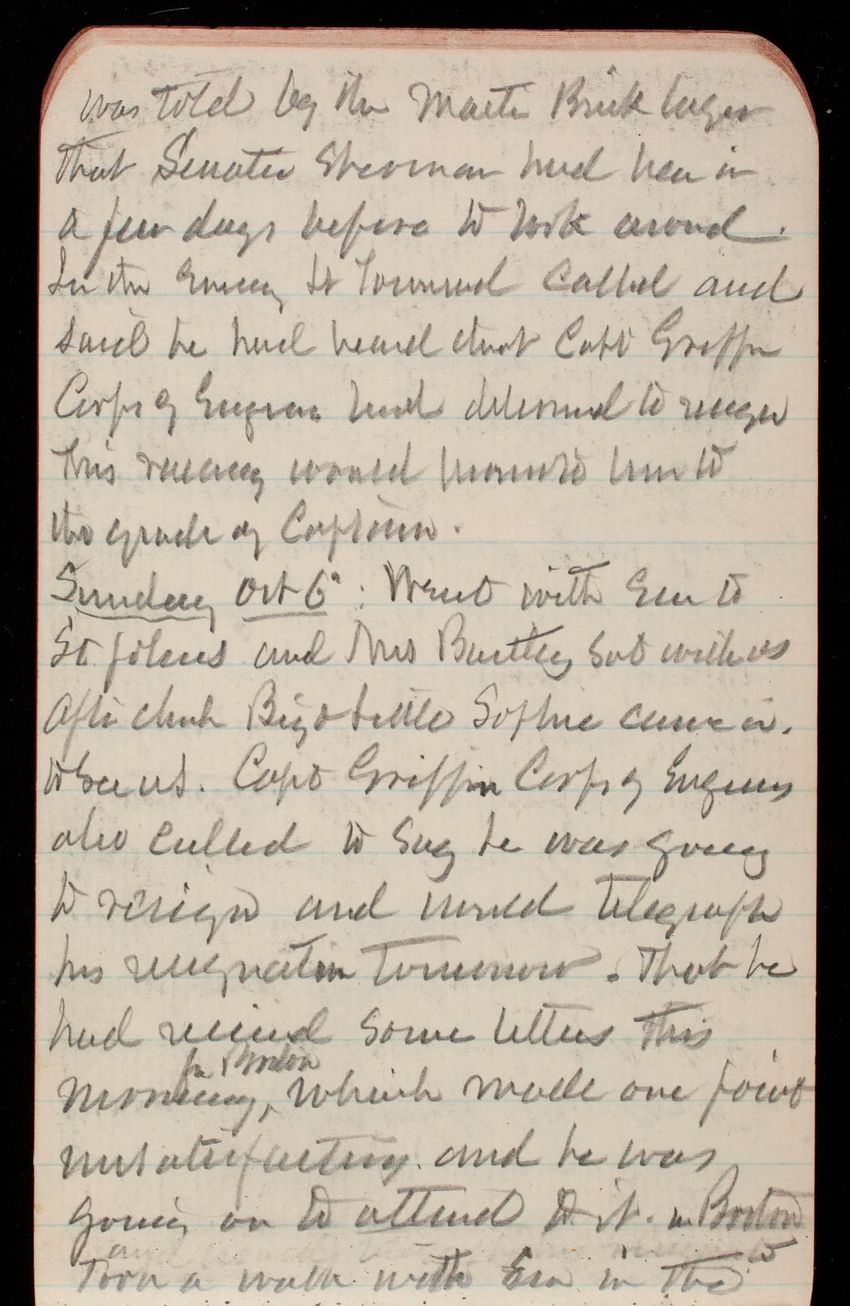 was told by the Master Brick layer
that Senator Sherman had been in
a few days before to look around.
In the Evening Lt Townsend Called and
said he had heard that Capt Griffin
Corps of Engrs had determined to resign
This vacancy would promote him to
the grade of Captain.
Sunday Oct 6": Went with Em to
St Johns and Mrs Bartley sat with us
After church Big & Little Sophie came in.
to see us. Capt Griffin Corps of Engineers
also called to say he was going
to resign and would telegraph
his resignation tomorrow. That he
had received some letters this
fr Boston
morning, which made one point
unsatisfactory. and he was
going on to attend to it. in Boston
Took a walk with Em in the